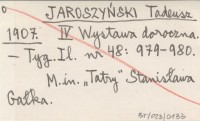 JAROSZYŃSKI Tadeusz
1907. IV Wystawa doroczna.
– Tyg. Il. nr 48: 979-980.
M.in. „Tatry" Stanisława
Gałka.